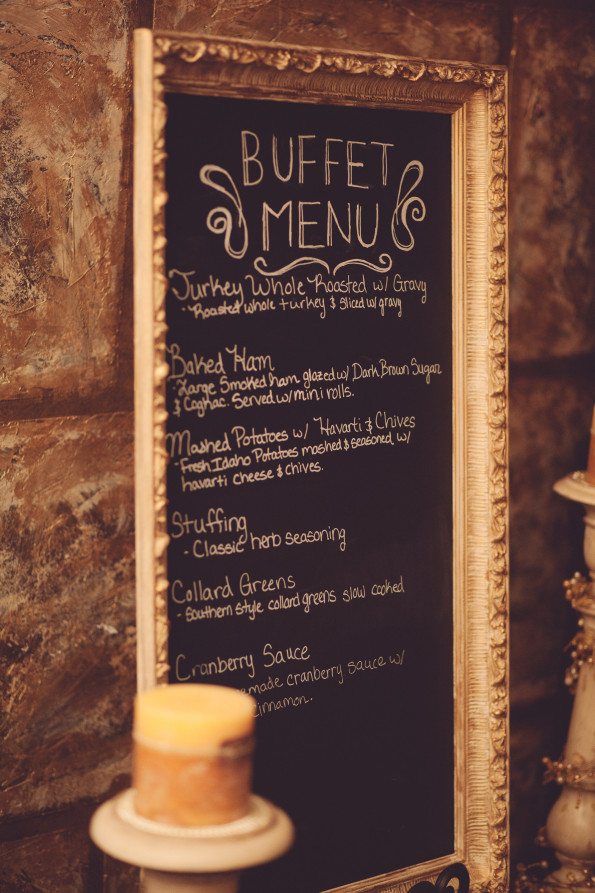 BUFFET
MENU
Turkey Whole Roasted w/ Gravy
- Roasted whole turkey & sliced w/ gravy
Baked Ham
- Large Smoked ham glazed w/ Dark Brown Sugar
& Cognac. Served w/ mini rolls.
Mashed Potatoes w/ Havarti & Chives
- Fresh Idaho Potatoes mashed & seasoned, w/
havarti cheese & chives.
Stuffing
- Classic herb seasoning
Collard Greens
- Southern style collard greens slow cooked
Cranberry Sauce
made cranberry sauce w/
cinnamon.